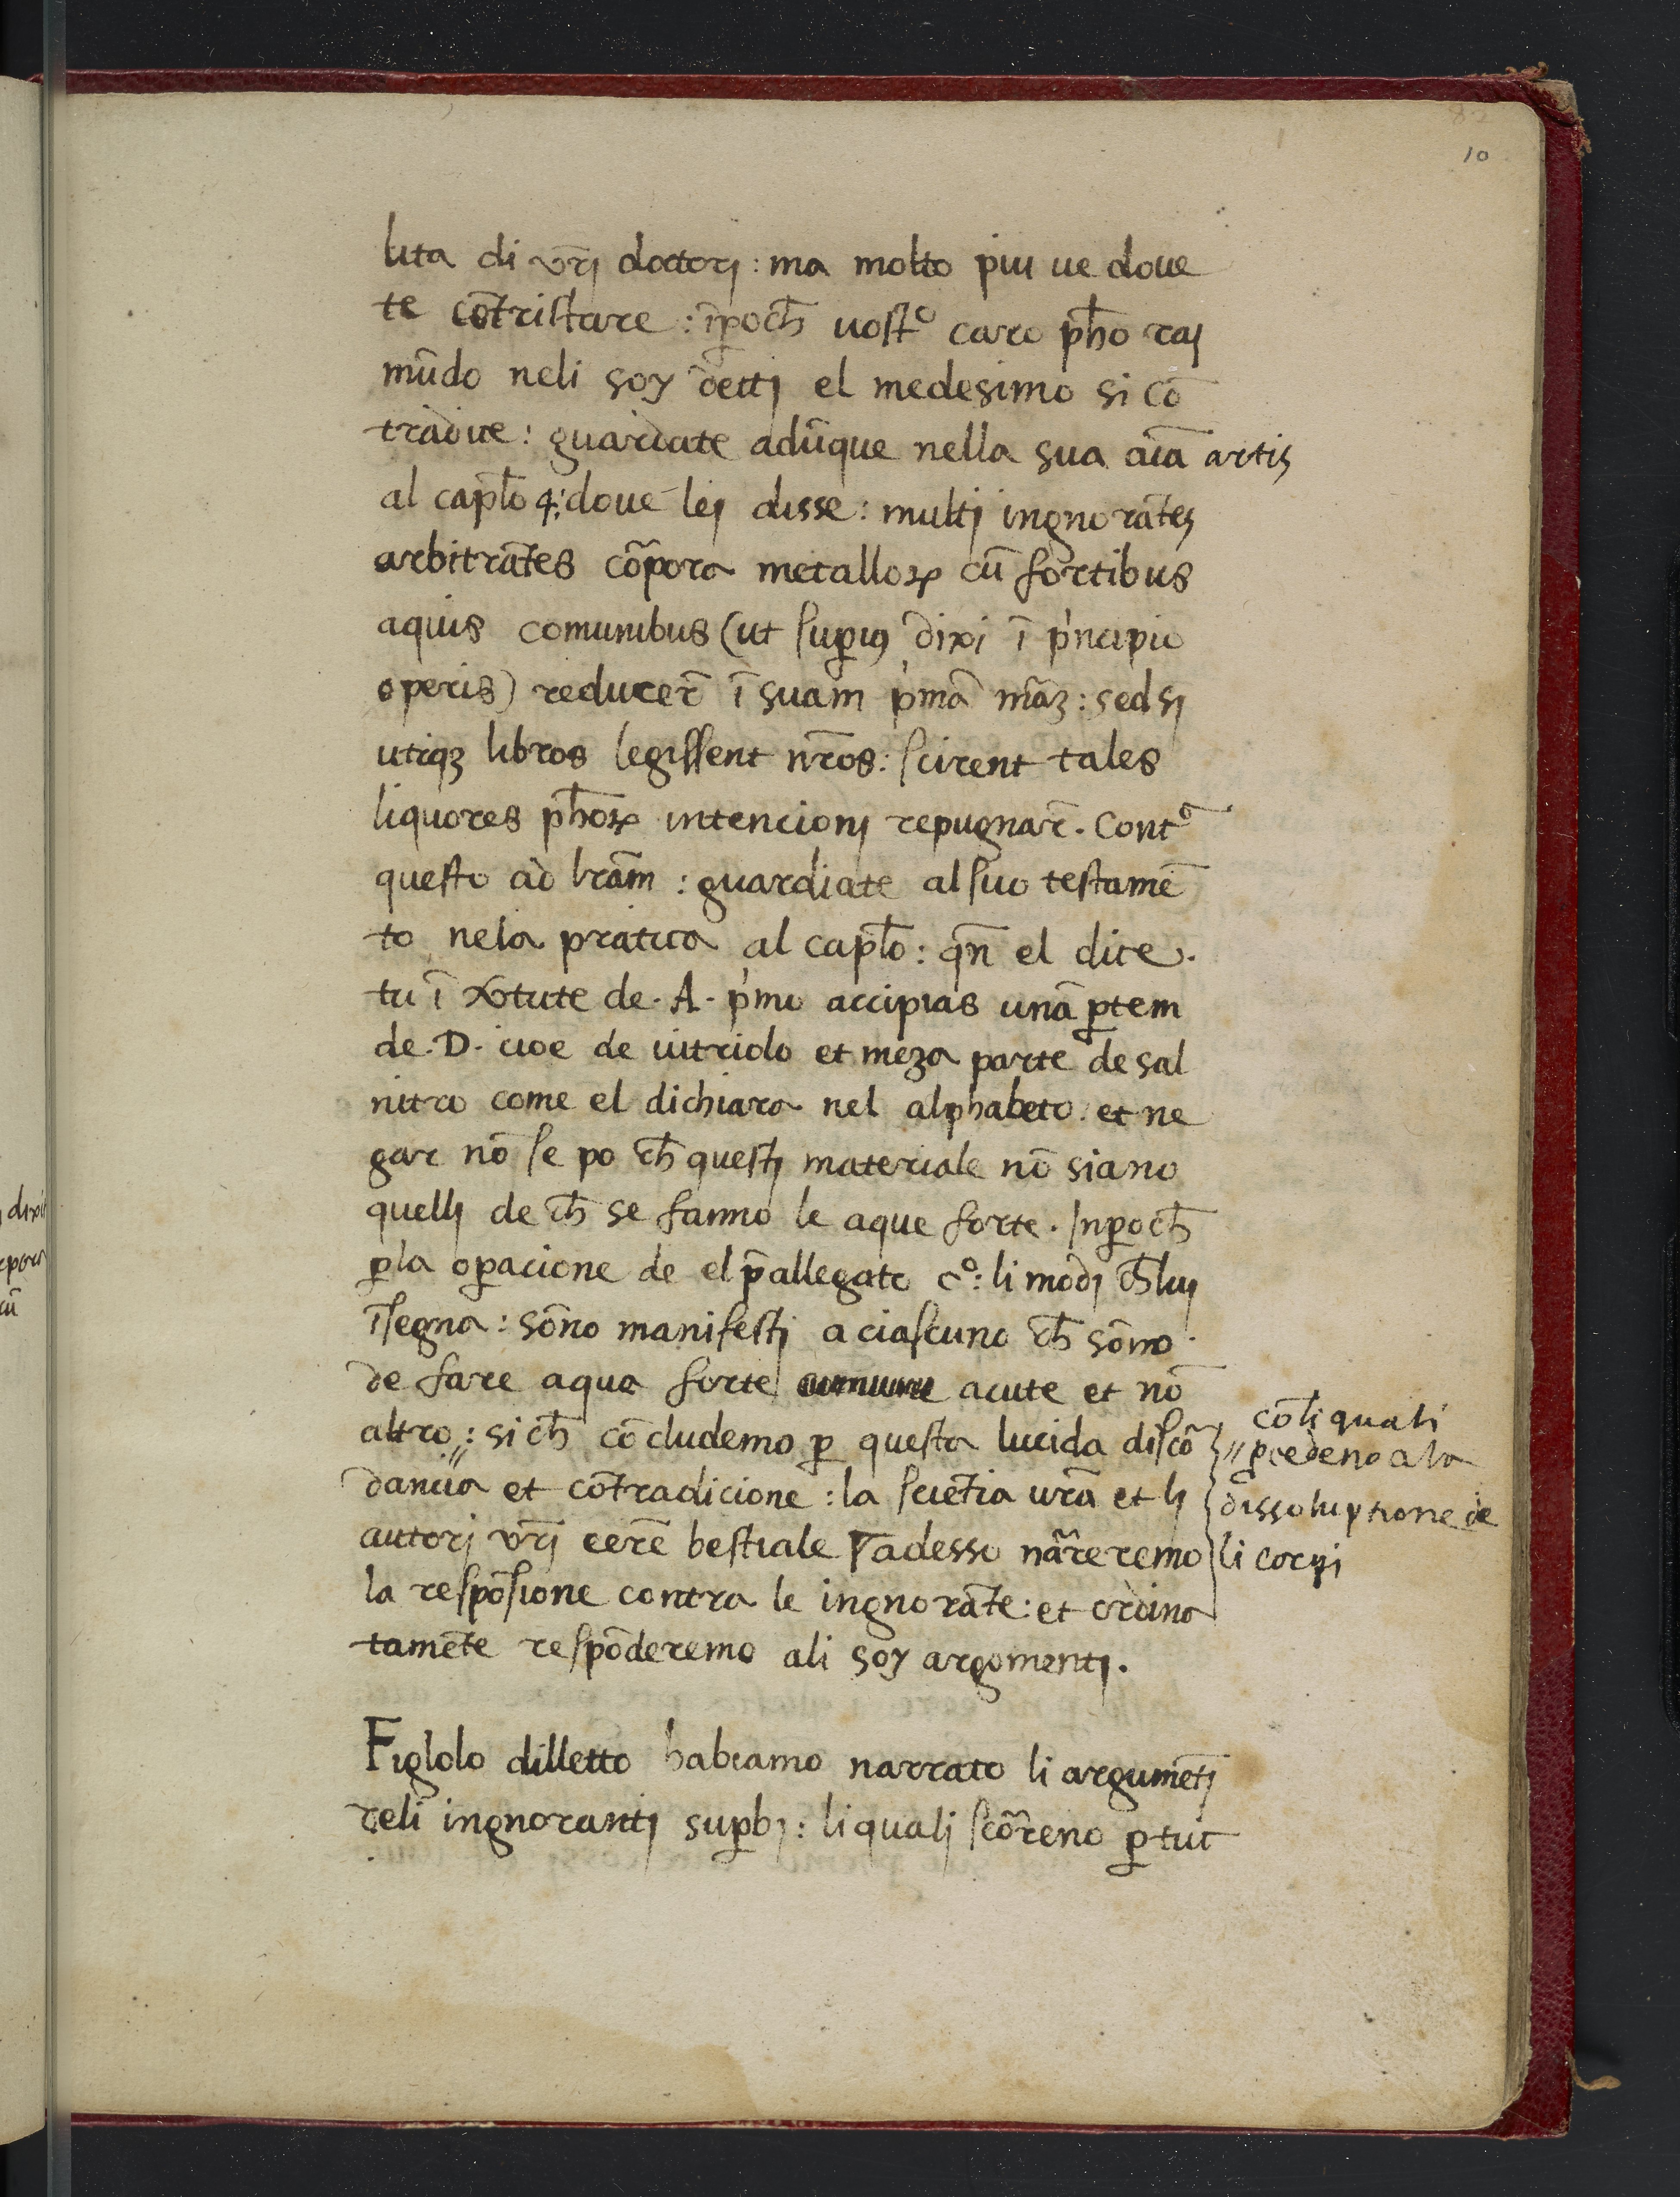 10
lita di vr̄j dottorj : ma molto piu ue doue
te cōtristare : īp̱och̄ uostº caro ph̄o raj
mūdo neli soy dettj el medesimo si cō
tradice : guardate adūque nella sua aīa artis
al caplo 4 : doue lej disse : multj ingnorātes
arbitrātes cōrpora metalloꝝ cū fortibus
aquis comunibus (ut suꝑiꝰ dixi ī p'ncipio
operis) reducer̄ ī suam p'mā māz : sed sj
utiqꝫ libros legissent nr̄os : scirent tales
liquores ph̄oꝝ intencionj repugnar̄ . Contº
questo ad lr̄am : guardiate al suo testamē
to nela pratica al caplo : qn̄ el dice .
tu ī v̄tute de . A . p'mo accipias unā ꝑtem
de . D . cioe de uitriolo et meza parte de sal
nitro come el dichiara nel alphabeto : et ne
gar nō se po ch̄ questj materiale nō siano
quellj de ch̄ se fanno le aque forte . Inꝑoch̄
ꝑla oꝑacione de el p̄allegato cº : li modj ch̄ luj
īsegna : sōno manifestj a ciascuno ch̄ sōno
de fare aqua forte comune acute et nō
altro : si ch̄ cō cludemo ꝑ questa lucida discō
dancia et cōtradicione : la sciētia ur̄a et lj
autorj vr̄j eere̅ bestiale adesso nārreremo
la respōsione contra le ingnorāte : et ordina
tamēte respōderemo ali soy argomentj .
cō li quali
ꝓcedeno a la
dissoluptione de
li corpi
Figlolo dilletto habiamo narrato li argumētj
deli ingnorantj suꝑbj : li qualj scōrreno ꝑ tut